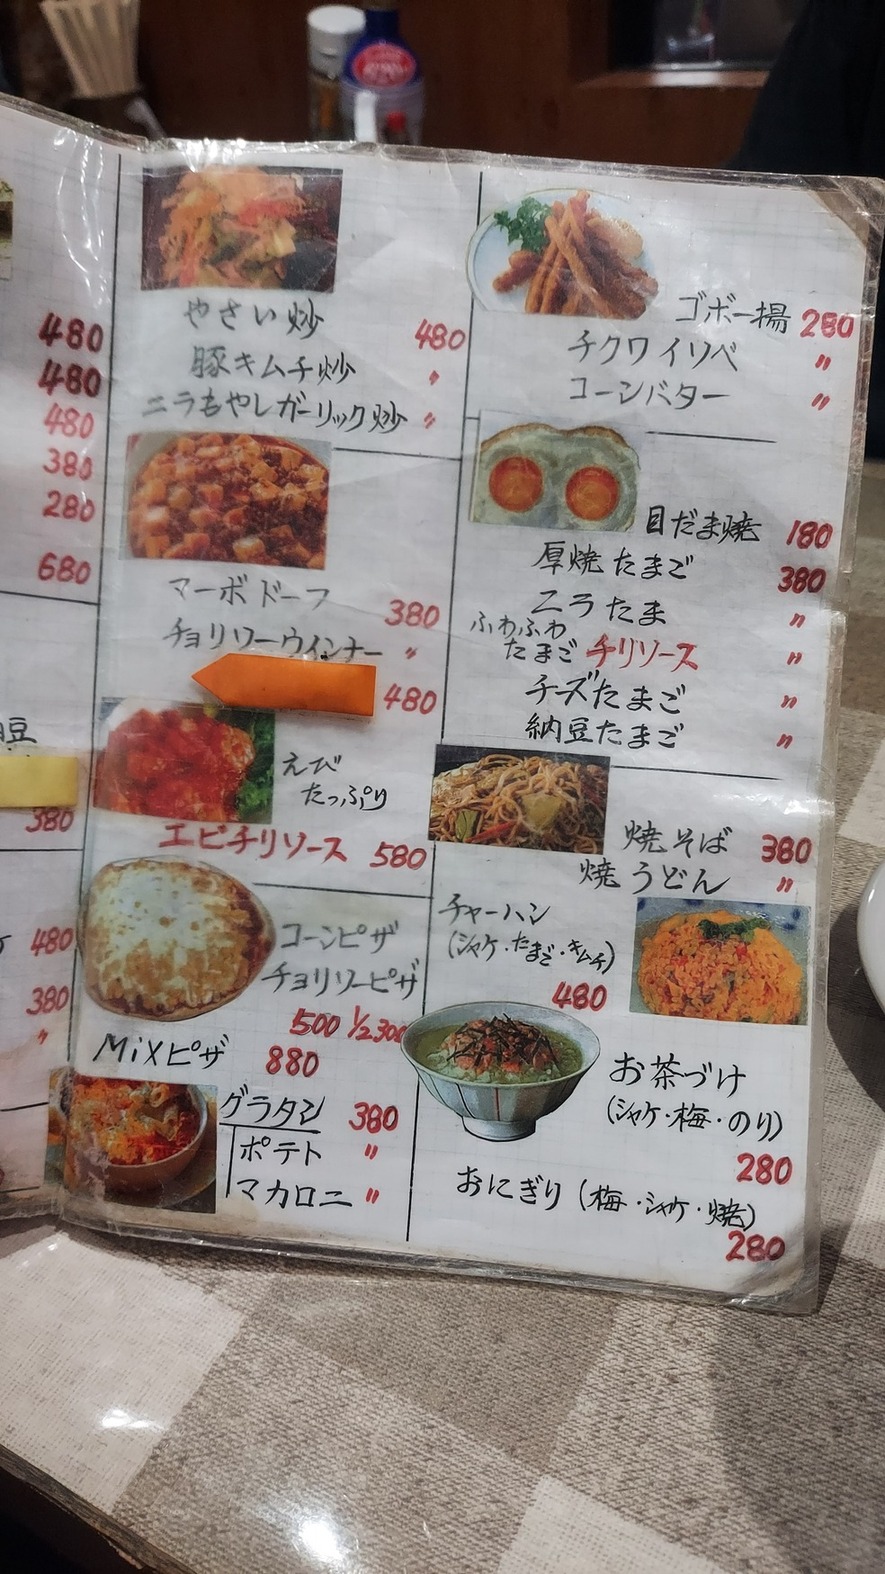 480
480
480
380
280
680
豆
380
480
380
〃
やさい炒 480
豚キムチ炒 〃
ニラもやしガーリック炒 〃
マーボドーフ 380
チョリソーウインナー 〃
480
えび
たっぷり
エビチリソース 580
コーンピザ
チョリソーピザ
500 1/2 300
MiXピザ 880
グラタン 380
ポテト 〃
マカロニ 〃
ゴボー揚 280
チクワイソベ 〃
コーンバター 〃
目だま焼 180
厚焼たまご 380
ニラたま 〃
ふわふわ
たまご チリソース 〃
チーズたまご 〃
納豆たまご 〃
焼そば 380
焼うどん 〃
チャーハン
(シャケ・たまご・キムチ)
480
お茶づけ
(シャケ・梅・のり)
280
おにぎり (梅・シャケ・焼)
280